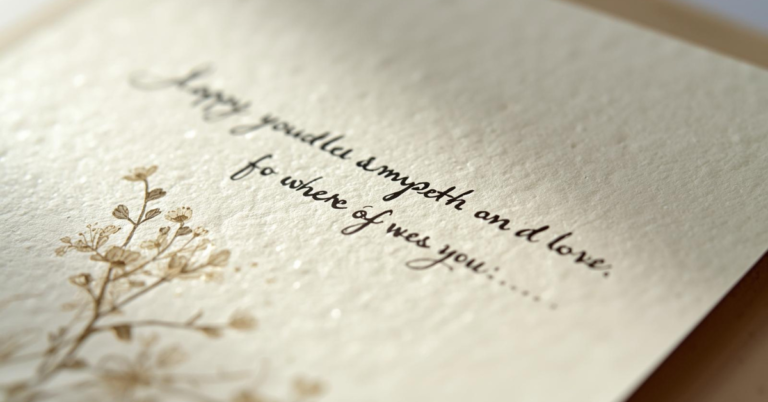 Happy youdlu smypeth an d love.
fo where of wes you:......